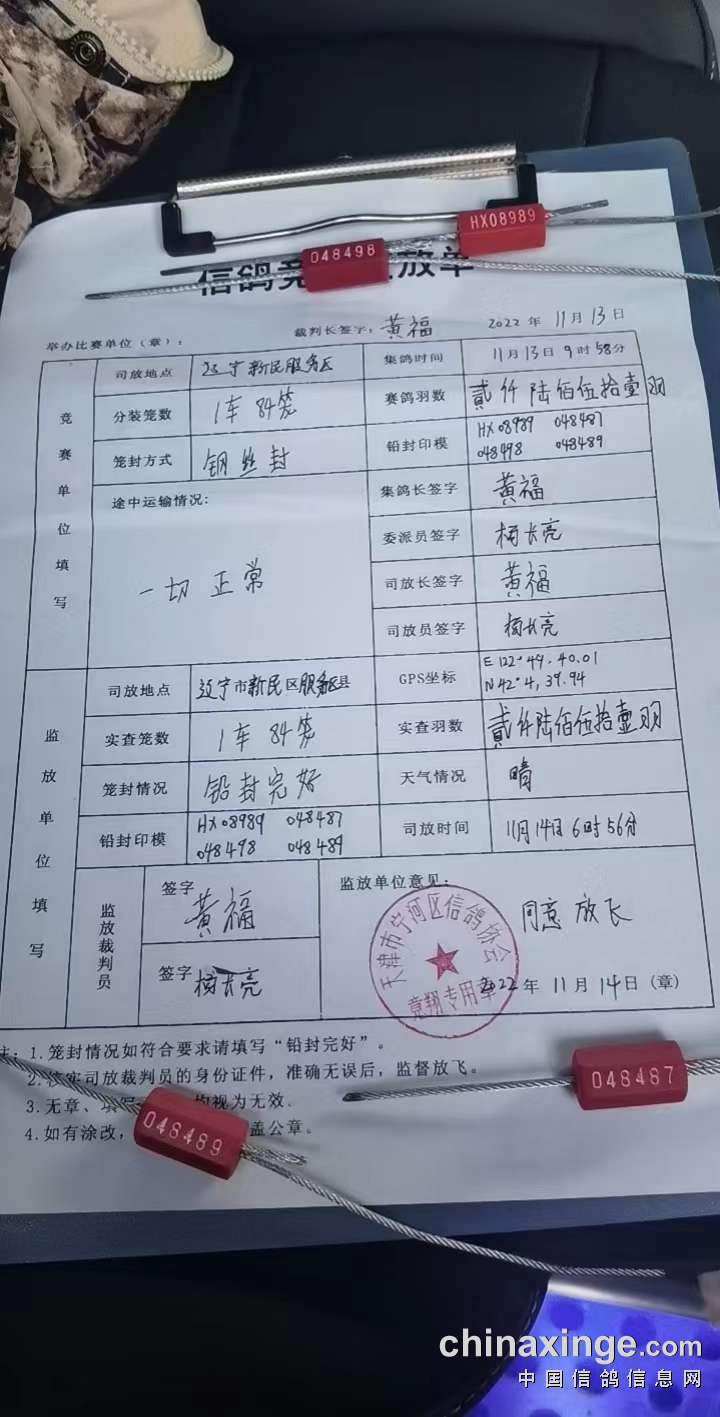 HX08989
048498
信鸽竞 放单
举办比赛单位（章）： 裁判长签字：黄福 2022年 11月13日
竞赛单位填写
司放地点 辽宁新民服务区 集鸽时间 11月13日9时58分
分装笼数 1车 84笼 赛鸽羽数 貳仟陆佰伍拾壹羽
笼封方式 钢丝封 铅封印模 HX08989 048487
048498 048489
途中运输情况： 集鸽长签字 黄福
一切正常 委派员签字 杨长亮
司放长签字 黄福
司放员签字 杨长亮
监放单位填写
司放地点 辽宁市新民区服务区县 GPS坐标 E 122°49.40.01
N 42°4,39.94
实查笼数 1车 84笼 实查羽数 貳仟陆佰伍拾壹羽
笼封情况 铅封完好 天气情况 晴
铅封印模 HX08989 048487 司放时间 11月14日6时56分
048498 048489
监放裁判员 签字 黄福 监放单位意见：
同意放飞
签字 杨长亮
天津市宁河区信鸽协会
竞翔专用章
2022年 11月14日（章）
注：1.笼封情况如符合要求请填写“铅封完好”。
2.核实司放裁判员的身份证件，准确无误后，监督放飞。
3.无章、填写 均视为无效．
4.如有涂改， 盖公章。
048487
048489
chinaxinge.com
中国信鸽信息网